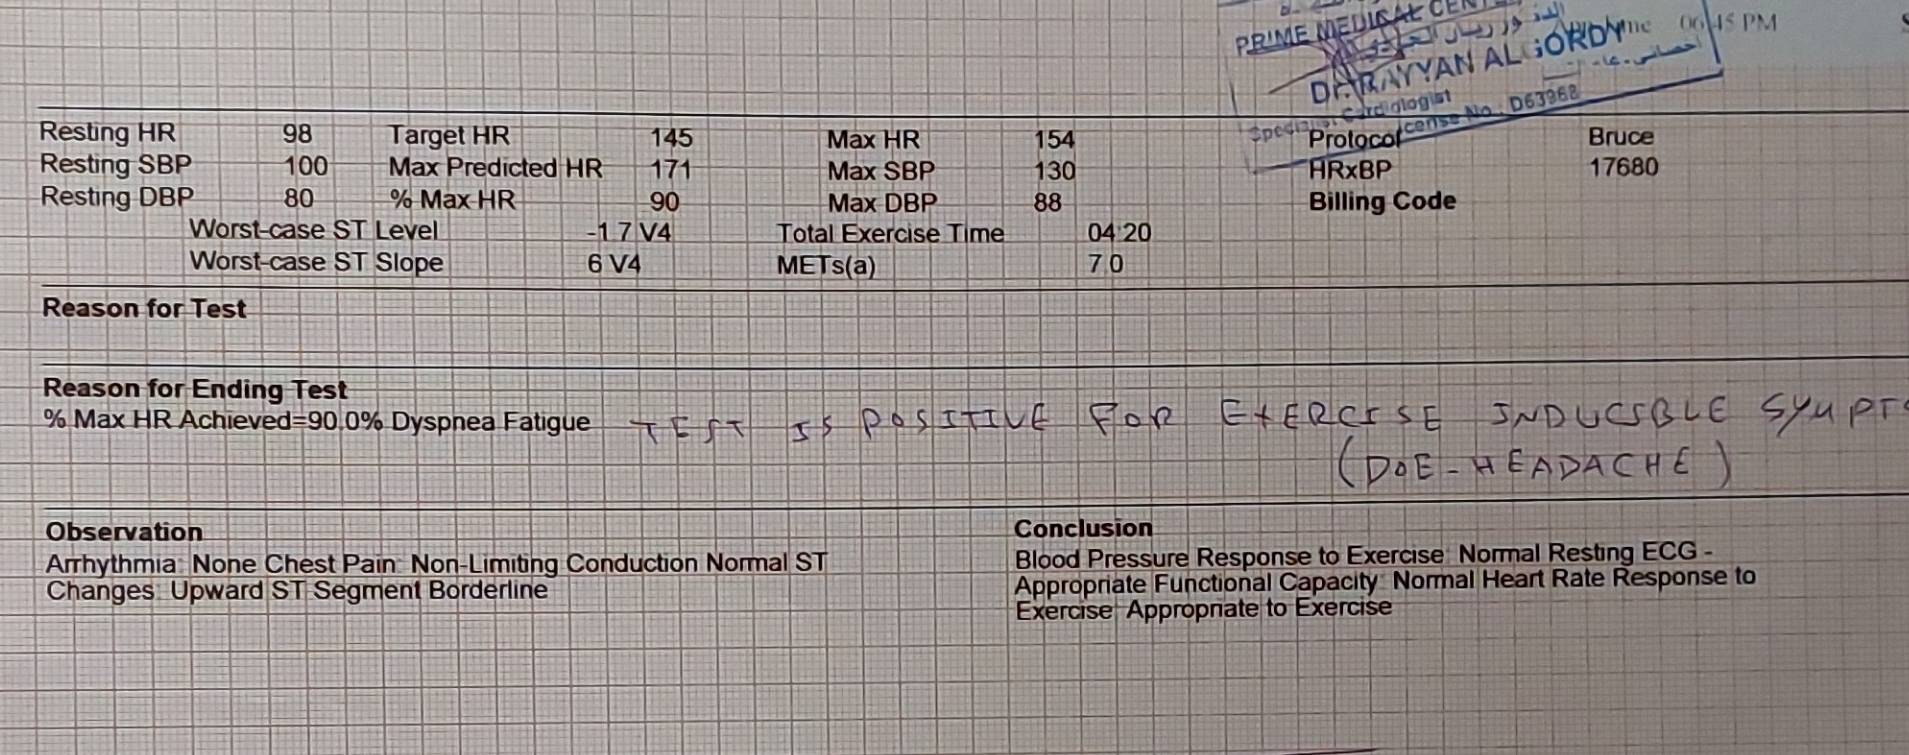 PRIME MEDICAL
06:45 PM
Dr. RAYYAN AL
Specialist Cardiologist
License No.: D63968
Resting HR 98 Target HR 145 Max HR 154 Protocol Bruce
Resting SBP 100 Max Predicted HR 171 Max SBP 130 HRxBP 17680
Resting DBP 80 % Max HR 90 Max DBP 88 Billing Code
Worst-case ST Level -1.7 V4 Total Exercise Time 04:20
Worst-case ST Slope 6 V4 METs(a) 7.0
Reason for Test
Reason for Ending Test
% Max HR Achieved=90.0% Dyspnea Fatigue TEST IS POSITIVE FOR EXERCISE INDUCIBLE SYMPT
(DOE - HEADACHE)
Observation
Arrhythmia: None Chest Pain: Non-Limiting Conduction Normal ST
Changes: Upward ST Segment Borderline
Conclusion
Blood Pressure Response to Exercise: Normal Resting ECG -
Appropriate Functional Capacity: Normal Heart Rate Response to
Exercise: Appropriate to Exercise